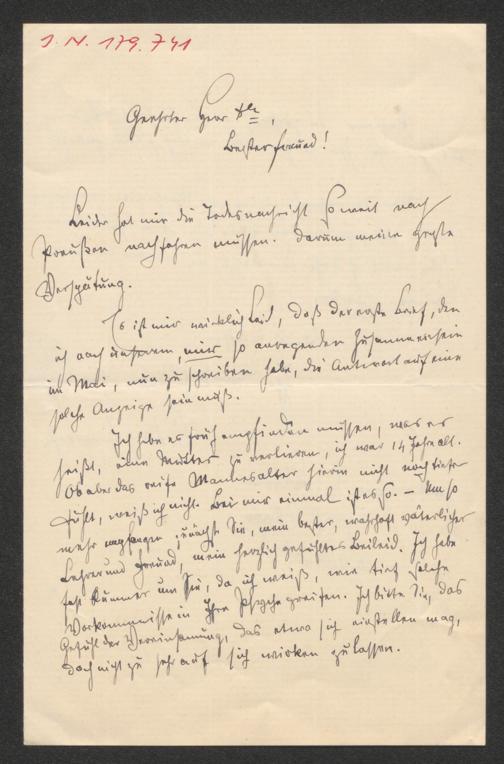 J. N. 179.741
Geehrter Herr Dr.,
Bester Freund!
Leider hat mir die Todesnachricht so weit nach
Preußen nachfahren müssen. Darum meine große
Verspätung.
Es ist mir wirklich Leid, daß der erste Brief, den
ich nach unserem, mir so anregenden Zusammensein
im Mai, nun zu schreiben habe, die Antwort auf eine
solche Anzeige sein muß.
Ich habe es früh empfinden müssen, was es
heißt, eine Mutter zu verlieren, ich war 14 Jahre alt.
Ob aber das reife Mannesalter hierin nicht noch tiefer
fühlt, weiß ich nicht. Bei mir einmal ist es so. – Um so
mehr empfangen Sie, mein bester, wahrhaft väterlicher
Lehrer und Freund, mein herzlich gefühltes Beileid. Ich habe
fast Kummer um Sie, da ich weiß, wie tief solche
Vorkommnisse in Ihre Psyche greifen. Ich bitte Sie, das
Gefühl der Vereinsamung, das etwa sich einstellen mag,
doch nicht zu sehr auf sich wirken zu lassen.